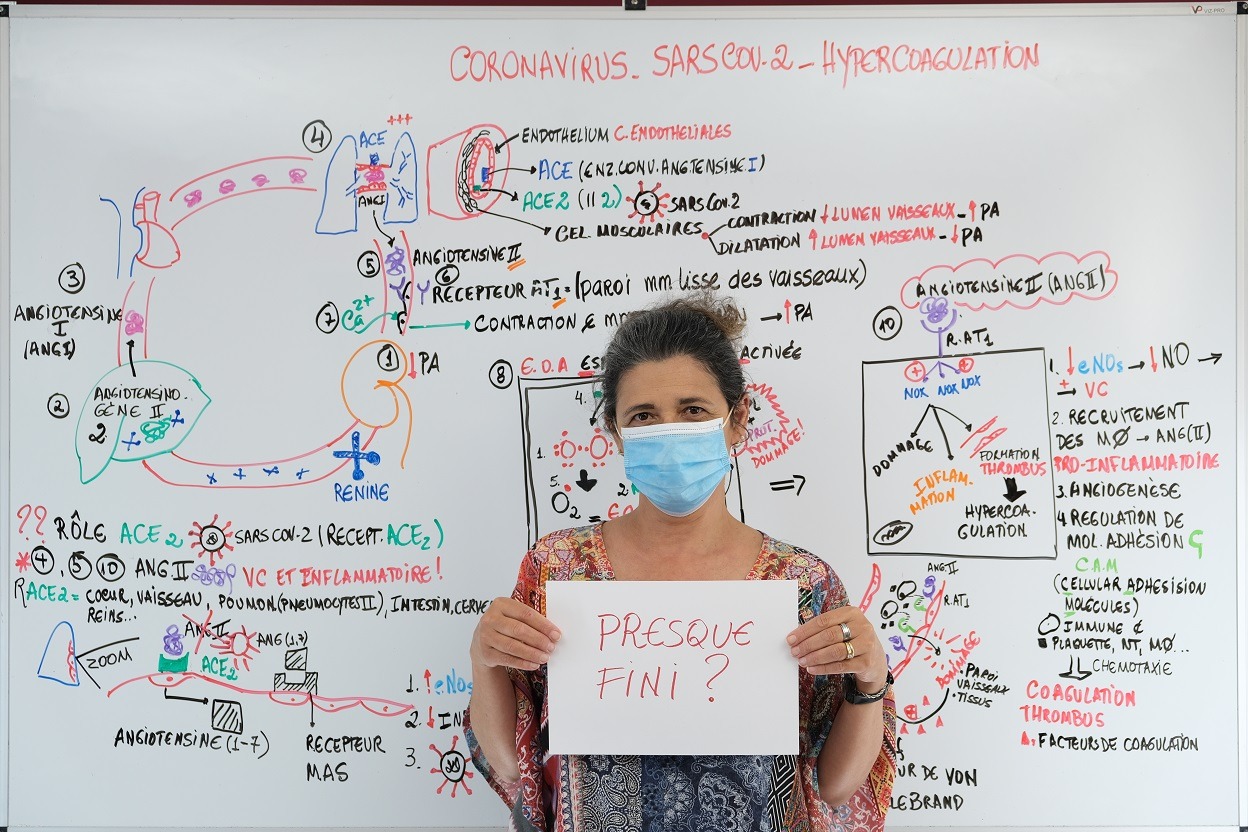 VIZ-PRO
CORONAVIRUS - SARS COV-2 - HYPERCOAGULATION
4
ACE
+++
ANG I
ENDOTHELIUM C. ENDOTHELIALES
ACE (ENZ. CONV. ANGTENSINE. I)
ACE 2 (II 2) SARS COV.2
CEL. MUSCULAIRES
CONTRACTION ↓ LUMEN VAISSEAUX - ↑ PA
DILATATION ↑ LUMEN VAISSEAUX - ↓ PA
5
ANGIOTENSINE II
6
RÉCEPTEUR AT1 = (paroi mm lisse des vaisseaux)
7 Ca2+
CONTRACTION
→ ↑PA
3
ANGIOTENSINE
I
(ANG I)
2
ANGIOTENSINO-
GÈNE II
2.
1 ↓ PA
RENINE
8 E.O.A
ACTIVÉE
4.
1.
5.
O2 =
PROT.
DOMMAGE!
⇒
PRESQUE
FINI ?
ANGIOTENSINE II (ANG II)
10
R.AT1
+ +
NOX NOX NOX
DOMMAGE
INFLAM-
MATION
FORMATION
THROMBUS
HYPERCOA-
GULATION
1. ↓ eNOs → ↓ NO →
+ → VC
2. RECRUITEMENT
DES MØ → ANG(II)
PRO-INFLAMMATOIRE
3. ANGIOGENÈSE
4 REGULATION DE
MOL. ADHÉSION
C.A.M
(CELLULAR ADHESISION
MOLÉCULES)
IMMUNE &
PLAQUETTE, NT, MØ...
CHEMOTAXIE
COAGULATION
THROMBUS
FACTEURS DE COAGULATION
ANG II
R.AT1
DOMMAGE
• PAROI
VAISSEAUX
• TISSUS
UR DE VON
LEBRAND
?? RÔLE ACE 2 SARS COV-2 (RECEPT. ACE2)
* 4, 5 10 ANG II VC ET INFLAMMATOIRE!
RACE2 = COEUR, VAISSEAU, POUMON (PNEUMOCYTES II), INTESTIN, CERVE
REINS...
ZOOM
ANG II
ACE2
ANG (1,7)
ANGIOTENSINE (1-7)
RECEPTEUR
MAS
1. ↑ eNOs
2. ↓ IN
3.